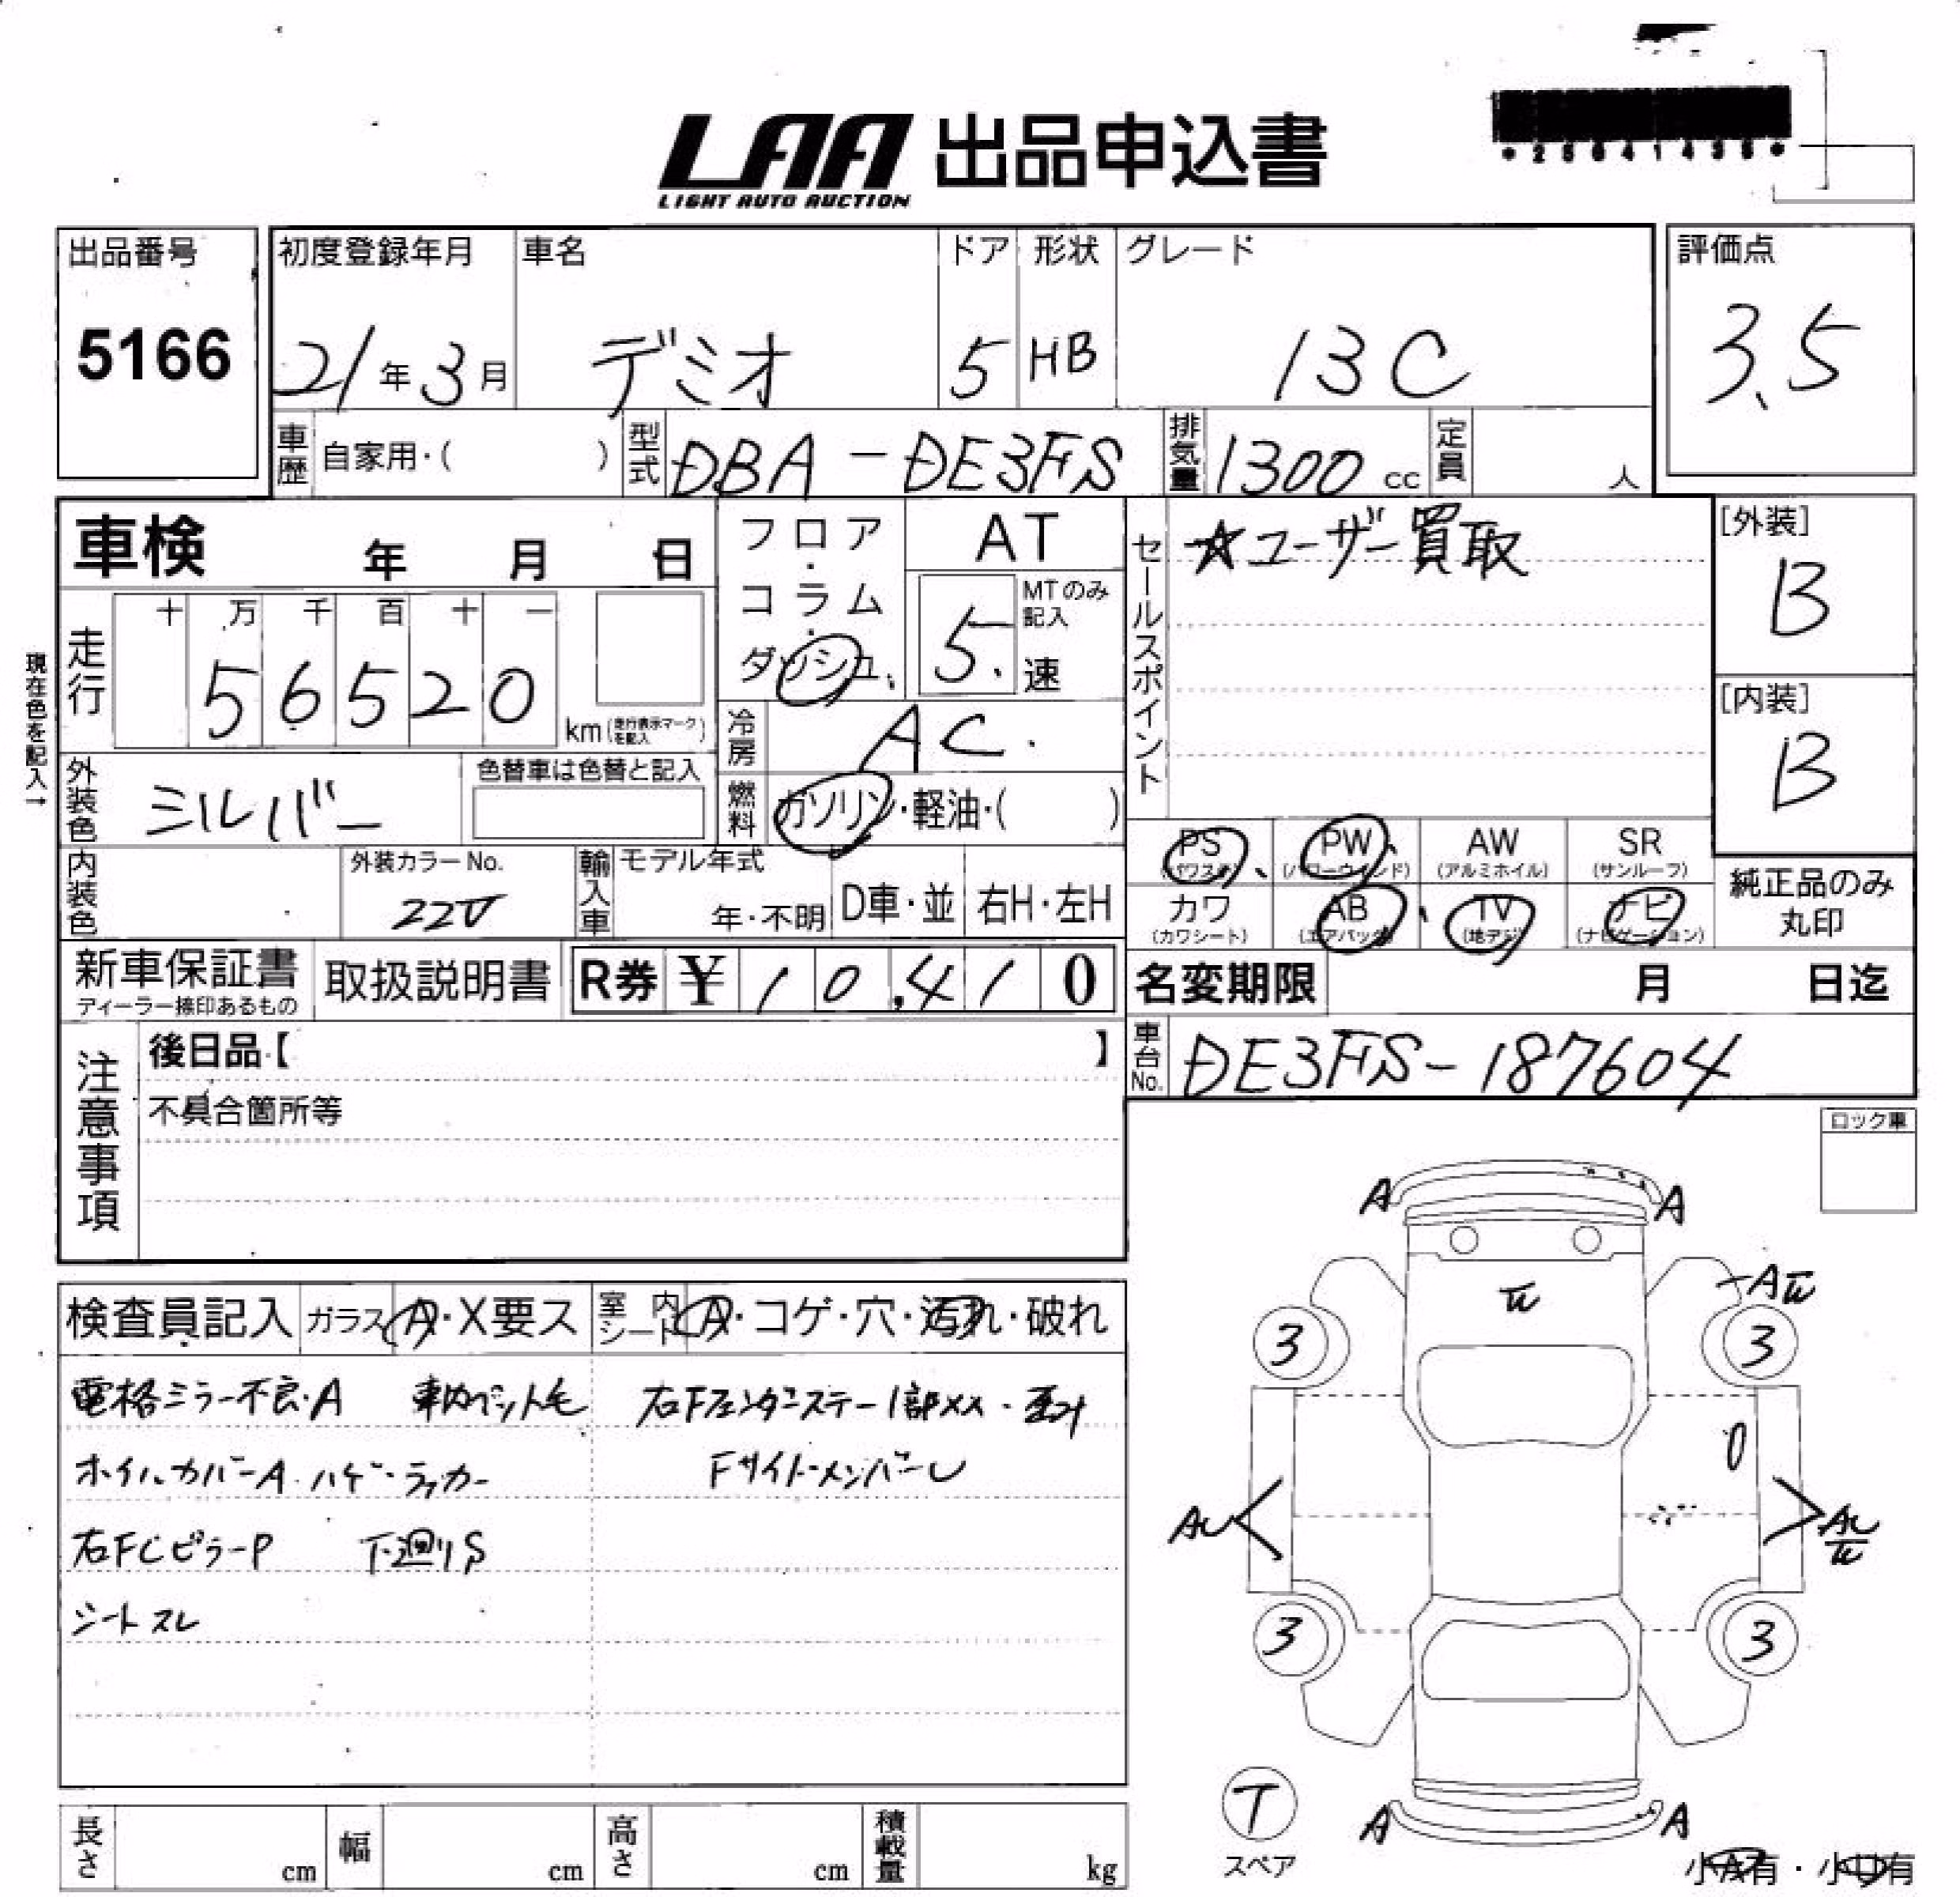 LAA 出品申込書
LIGHT AUTO AUCTION
出品番号
5166
初度登録年月 車名 ドア 形状 グレード
21年3月 デミオ 5 HB 13C
評価点
3.5
車歴 自家用・( ) 型式 DBA-DE3FS 排気量 1300cc 定員 人
車検 年 月 日
フロア・コラム・ダッシュ
AT
5. 速 MTのみ記入
セールスポイント
☆ユーザー買取
[外装]
B
[内装]
B
現在色を記入→
走行 十 万 千 百 十 一
56520 km(走行表示マークを記入)
冷房 AC.
外装色 シルバー 色替車は色替と記入
燃料 ガソリン・軽油・( )
PS PW AW SR
(パワステ) (パワーウインド) (アルミホイル) (サンルーフ)
カワ AB TV ナビ
(カワシート) (エアバック) (地デジ) (ナビゲーション)
純正品のみ
丸印
内装色 外装カラーNo. 22V 輸入車 モデル年式 年・不明 D車・並 右H・左H
新車保証書
ディーラー捺印あるもの
取扱説明書
R券 ¥10,410
名変期限 月 日迄
車台No. DE3FS-187604
注意事項
後日品【 】
不具合箇所等
ロック車
検査員記入 ガラス A・X要ス 室内シート A・コゲ・穴・汚れ・破れ
電格ミラー不良・A 車内ペット毛 右Fフェンダーステー1部XX・歪み
ホイルカバーA ハゲ・ラッカー Fサイドメンバーし
右FCピラーP 下廻りS
シートスレ
A A
3 3
0
3 3
T
スペア
A A
小A有・小U有
長さ cm 幅 cm 高さ cm 積載量 kg